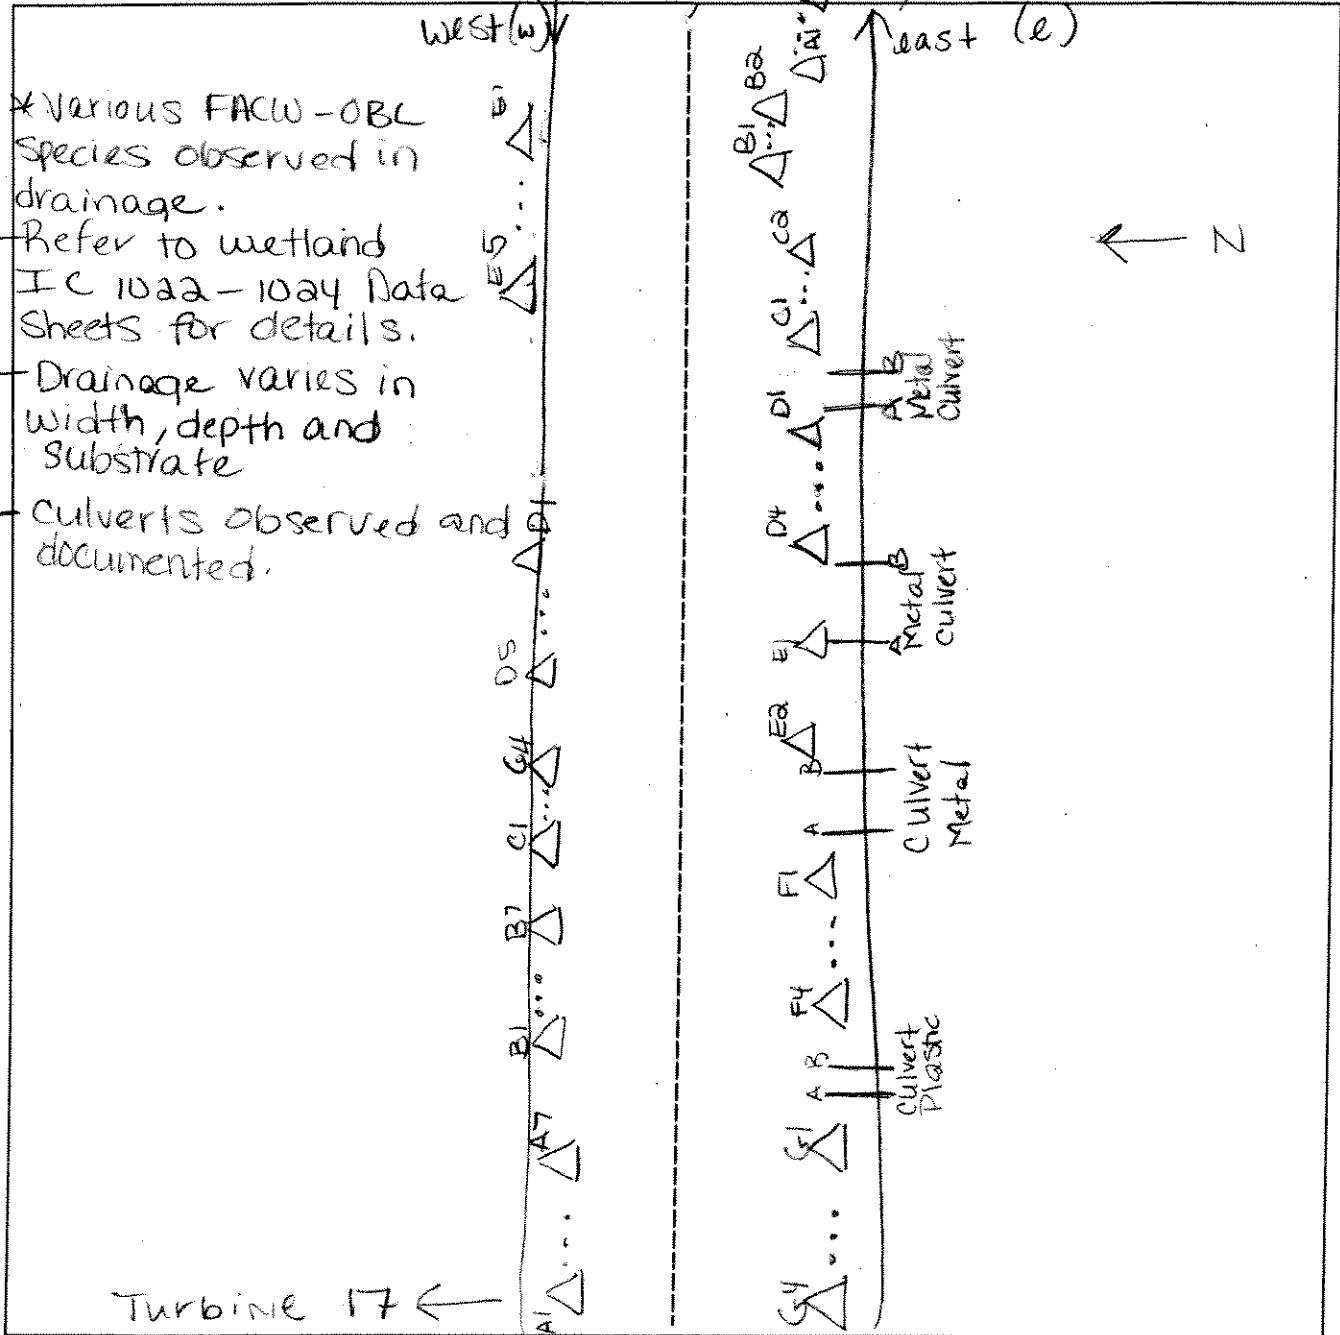 West (w)
east (e)
* Various FACW-OBL
species observed in
drainage.
- Refer to wetland
IC 1022-1024 Data
Sheets for details.
- Drainage varies in
width, depth and
substrate
- Culverts observed and
documented.
E1
E5
D1
D5
C4
C1
B7
B1
A7
A1
Turbine 17
A1
B2
B1
C2
C1
B
A
Metal
Culvert
D1
D4
B
A
Metal
Culvert
E1
E2
B
A
Culvert
Metal
F1
F4
B
A
Culvert
Plastic
G1
G4
N